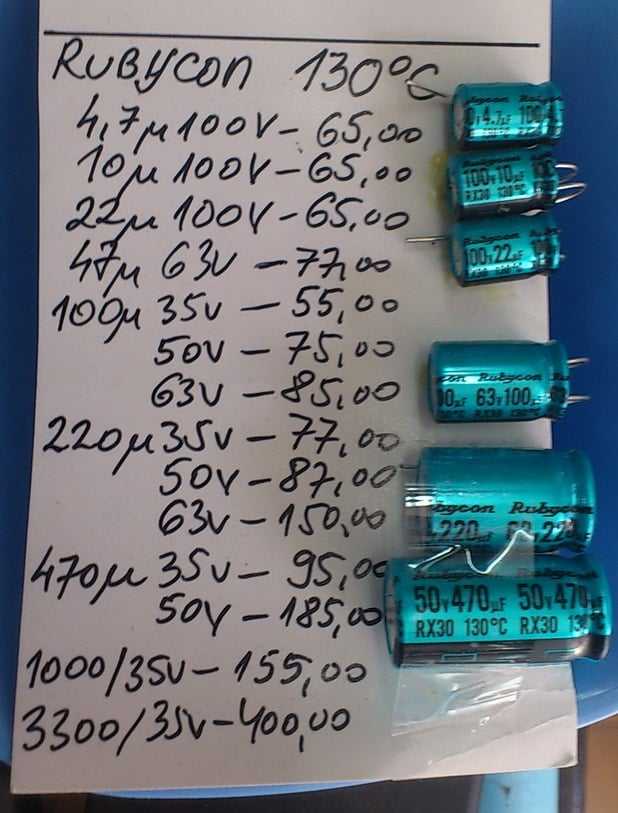 RUBYCON 130°C
4,7µ 100V – 65,00
10µ 100V – 65,00
22µ 100V – 65,00
47µ 63V – 77,00
100µ 35V – 55,00
50V – 75,00
63V – 85,00
220µ 35V – 77,00
50V – 87,00
63V – 150,00
470µ 35V – 95,00
50V – 185,00
1000/35V – 155,00
3300/35V – 400,00
Rubycon
4.7µF 100
Rubycon
100V 10µF 100
RX30 130°C
Rubycon
100V 22µF 100
RX30 130°C
Rubycon
63V 100µF
RX30 130°C
Rubycon
220µF
Rubycon
50V 470µF 50V 470
RX30 130°C RX30 130